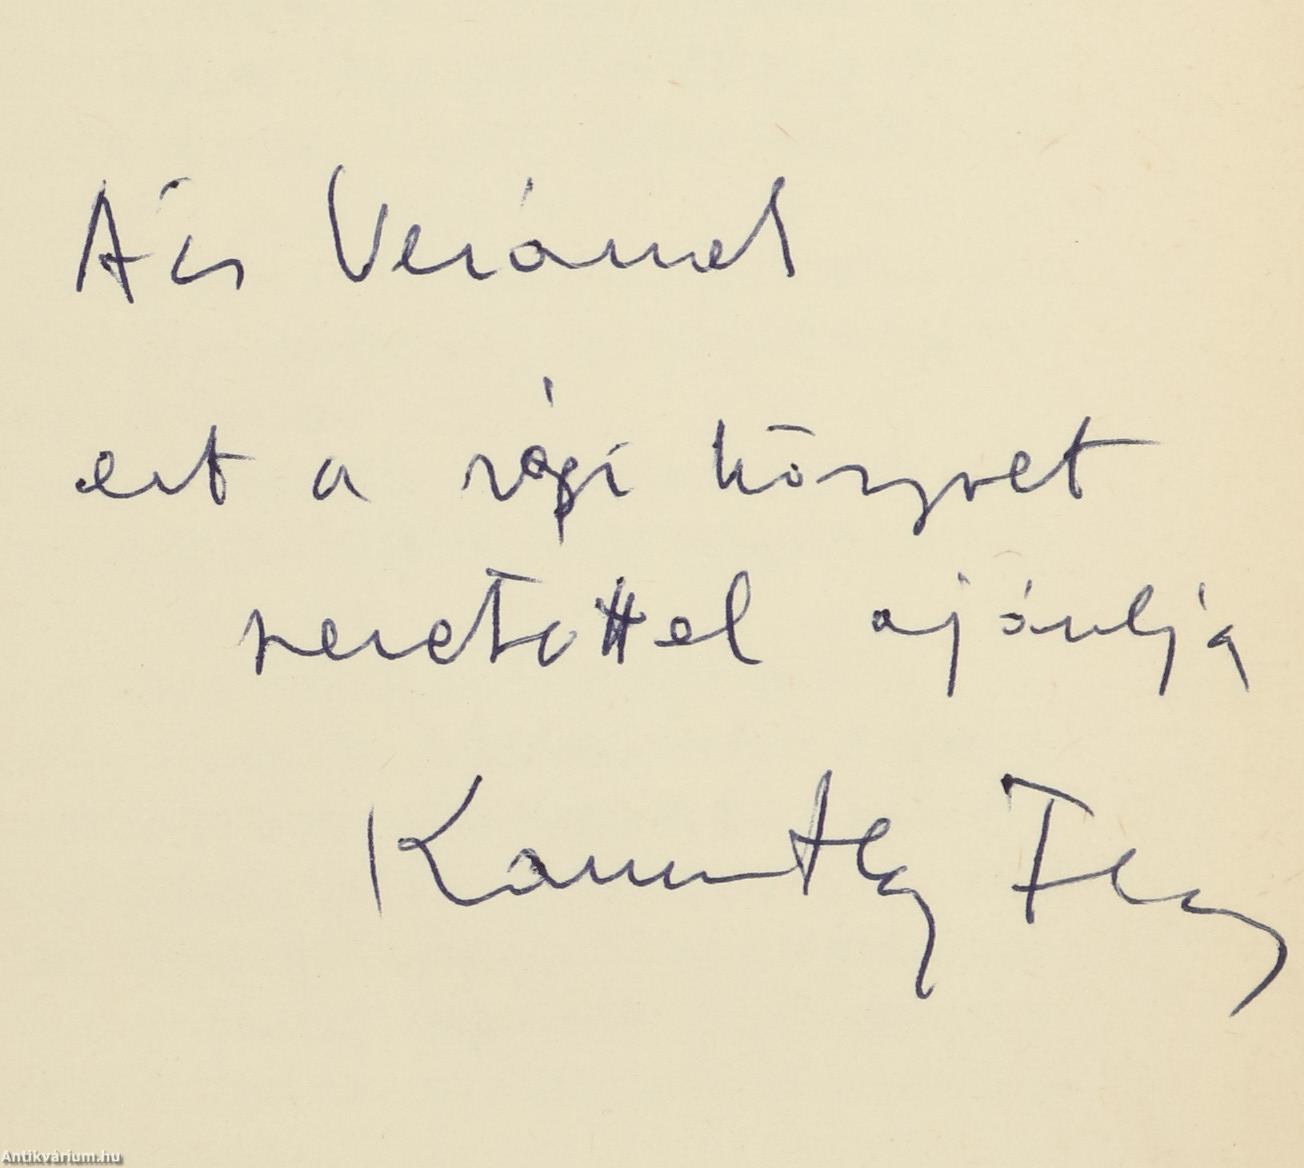 Ács Verának
ezt a régi könyvet
szeretettel ajánlja
Karinthy Ferenc
Antikvárium.hu